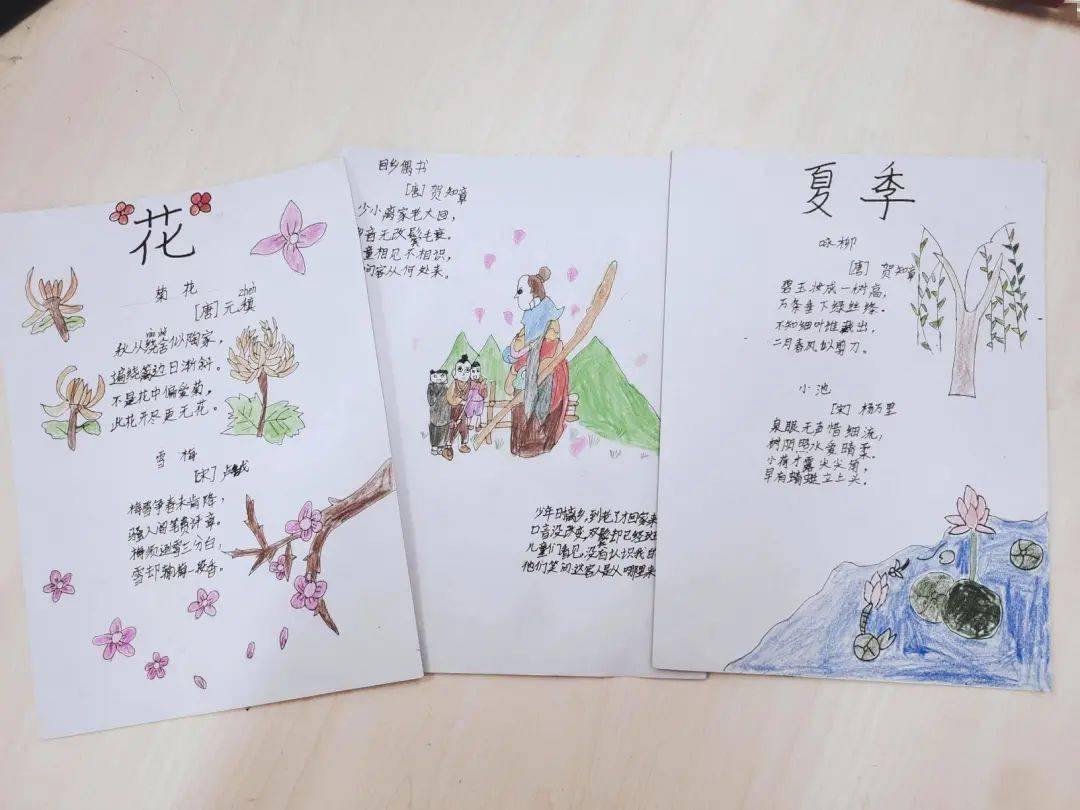 花
菊花
zhěn
[唐]元稹
秋从绕舍似陶家，
遍绕篱边日渐斜。
不是花中偏爱菊，
此花开尽更无花。
雪梅
[宋]卢钺
梅雪争春未肯降，
骚人阁笔费评章。
梅须逊雪三分白，
雪却输梅一段香。
回乡偶书
[唐]贺知章
少小离家老大回，
音无改鬓毛衰。
童相见不相识，
问客从何处来。
少年时离乡，到老了才回家来
口音没改变，双鬓却已经
儿童们看见，没有认识我
他们笑问这客人是从哪里来
夏季
咏柳
[唐]贺知章
碧玉妆成一树高，
万条垂下绿丝绦。
不知细叶谁裁出，
二月春风似剪刀。
小池
[宋]杨万里
泉眼无声惜细流，
树阴照水爱晴柔。
小荷才露尖尖角，
早有蜻蜓立上头。